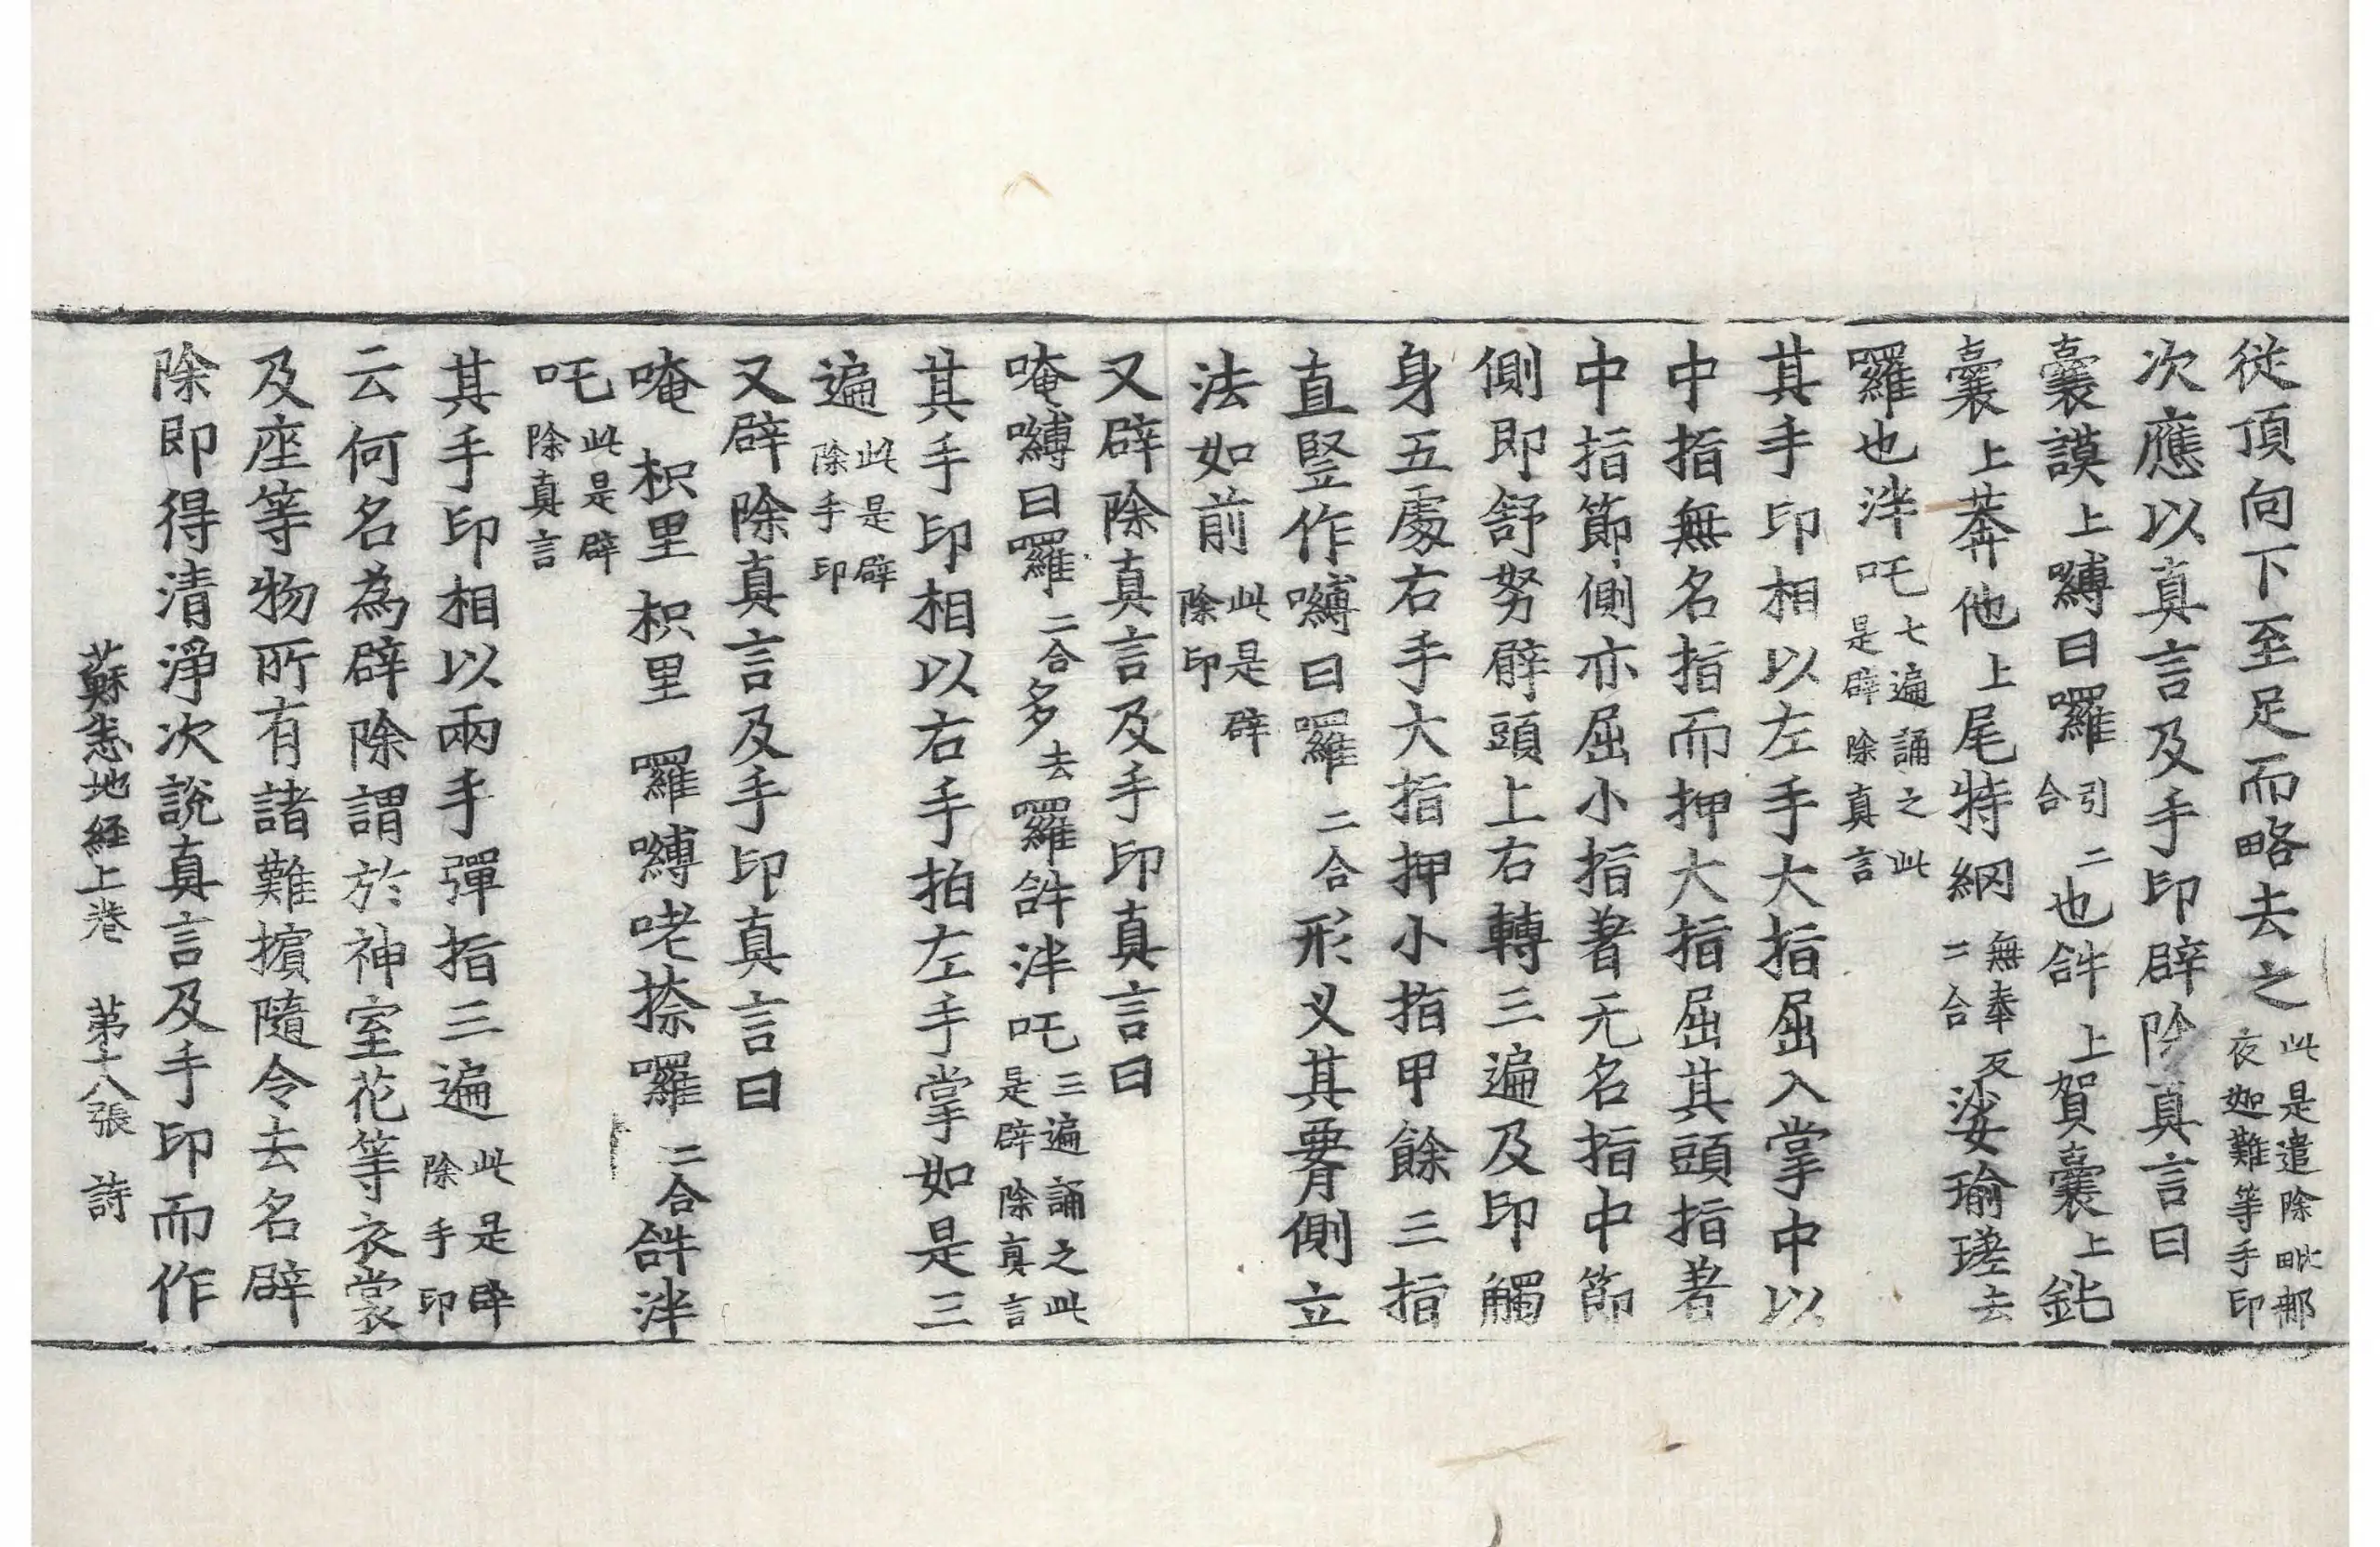 從頂向下至足而略去之此是遣除毗那夜迦難等手印
次應以真言及手印辟除真言曰
囊謨上嚩曰囉引二合也合牛上賀囊上鈋
囊上莽他上尾特綱無奉反二合娑瑜瑳去
囉也泮吒七遍誦之此是辟除真言
其手印相以左手大指屈入掌中以
中指無名指而押大指屈其頭指著
中指節側亦屈小指著无名指中節
側即舒努臂頭上右轉三遍及印觸
身五處右手大指押小指甲餘三指
直竪作嚩曰囉二合形叉其䯊側立
法如前此是辟除印
又辟除真言及手印真言曰
唵嚩曰囉二合多去囉𤙖泮吒三遍誦之此是辟除真言
其手印相以右手拍左手掌如是三
遍此是辟除手印
又辟除真言及手印真言曰
唵枳里枳里囉嚩咾捺囉二合𤙖泮
吒此是辟除真言
其手印相以兩手彈指三遍此是辟除手印
云何名為辟除謂於神室花等衣裳
及座等物所有諸難擯隨令去名辟
除即得清淨次說真言及手印而作
蘇悉地経上巻 苐十八張 詩